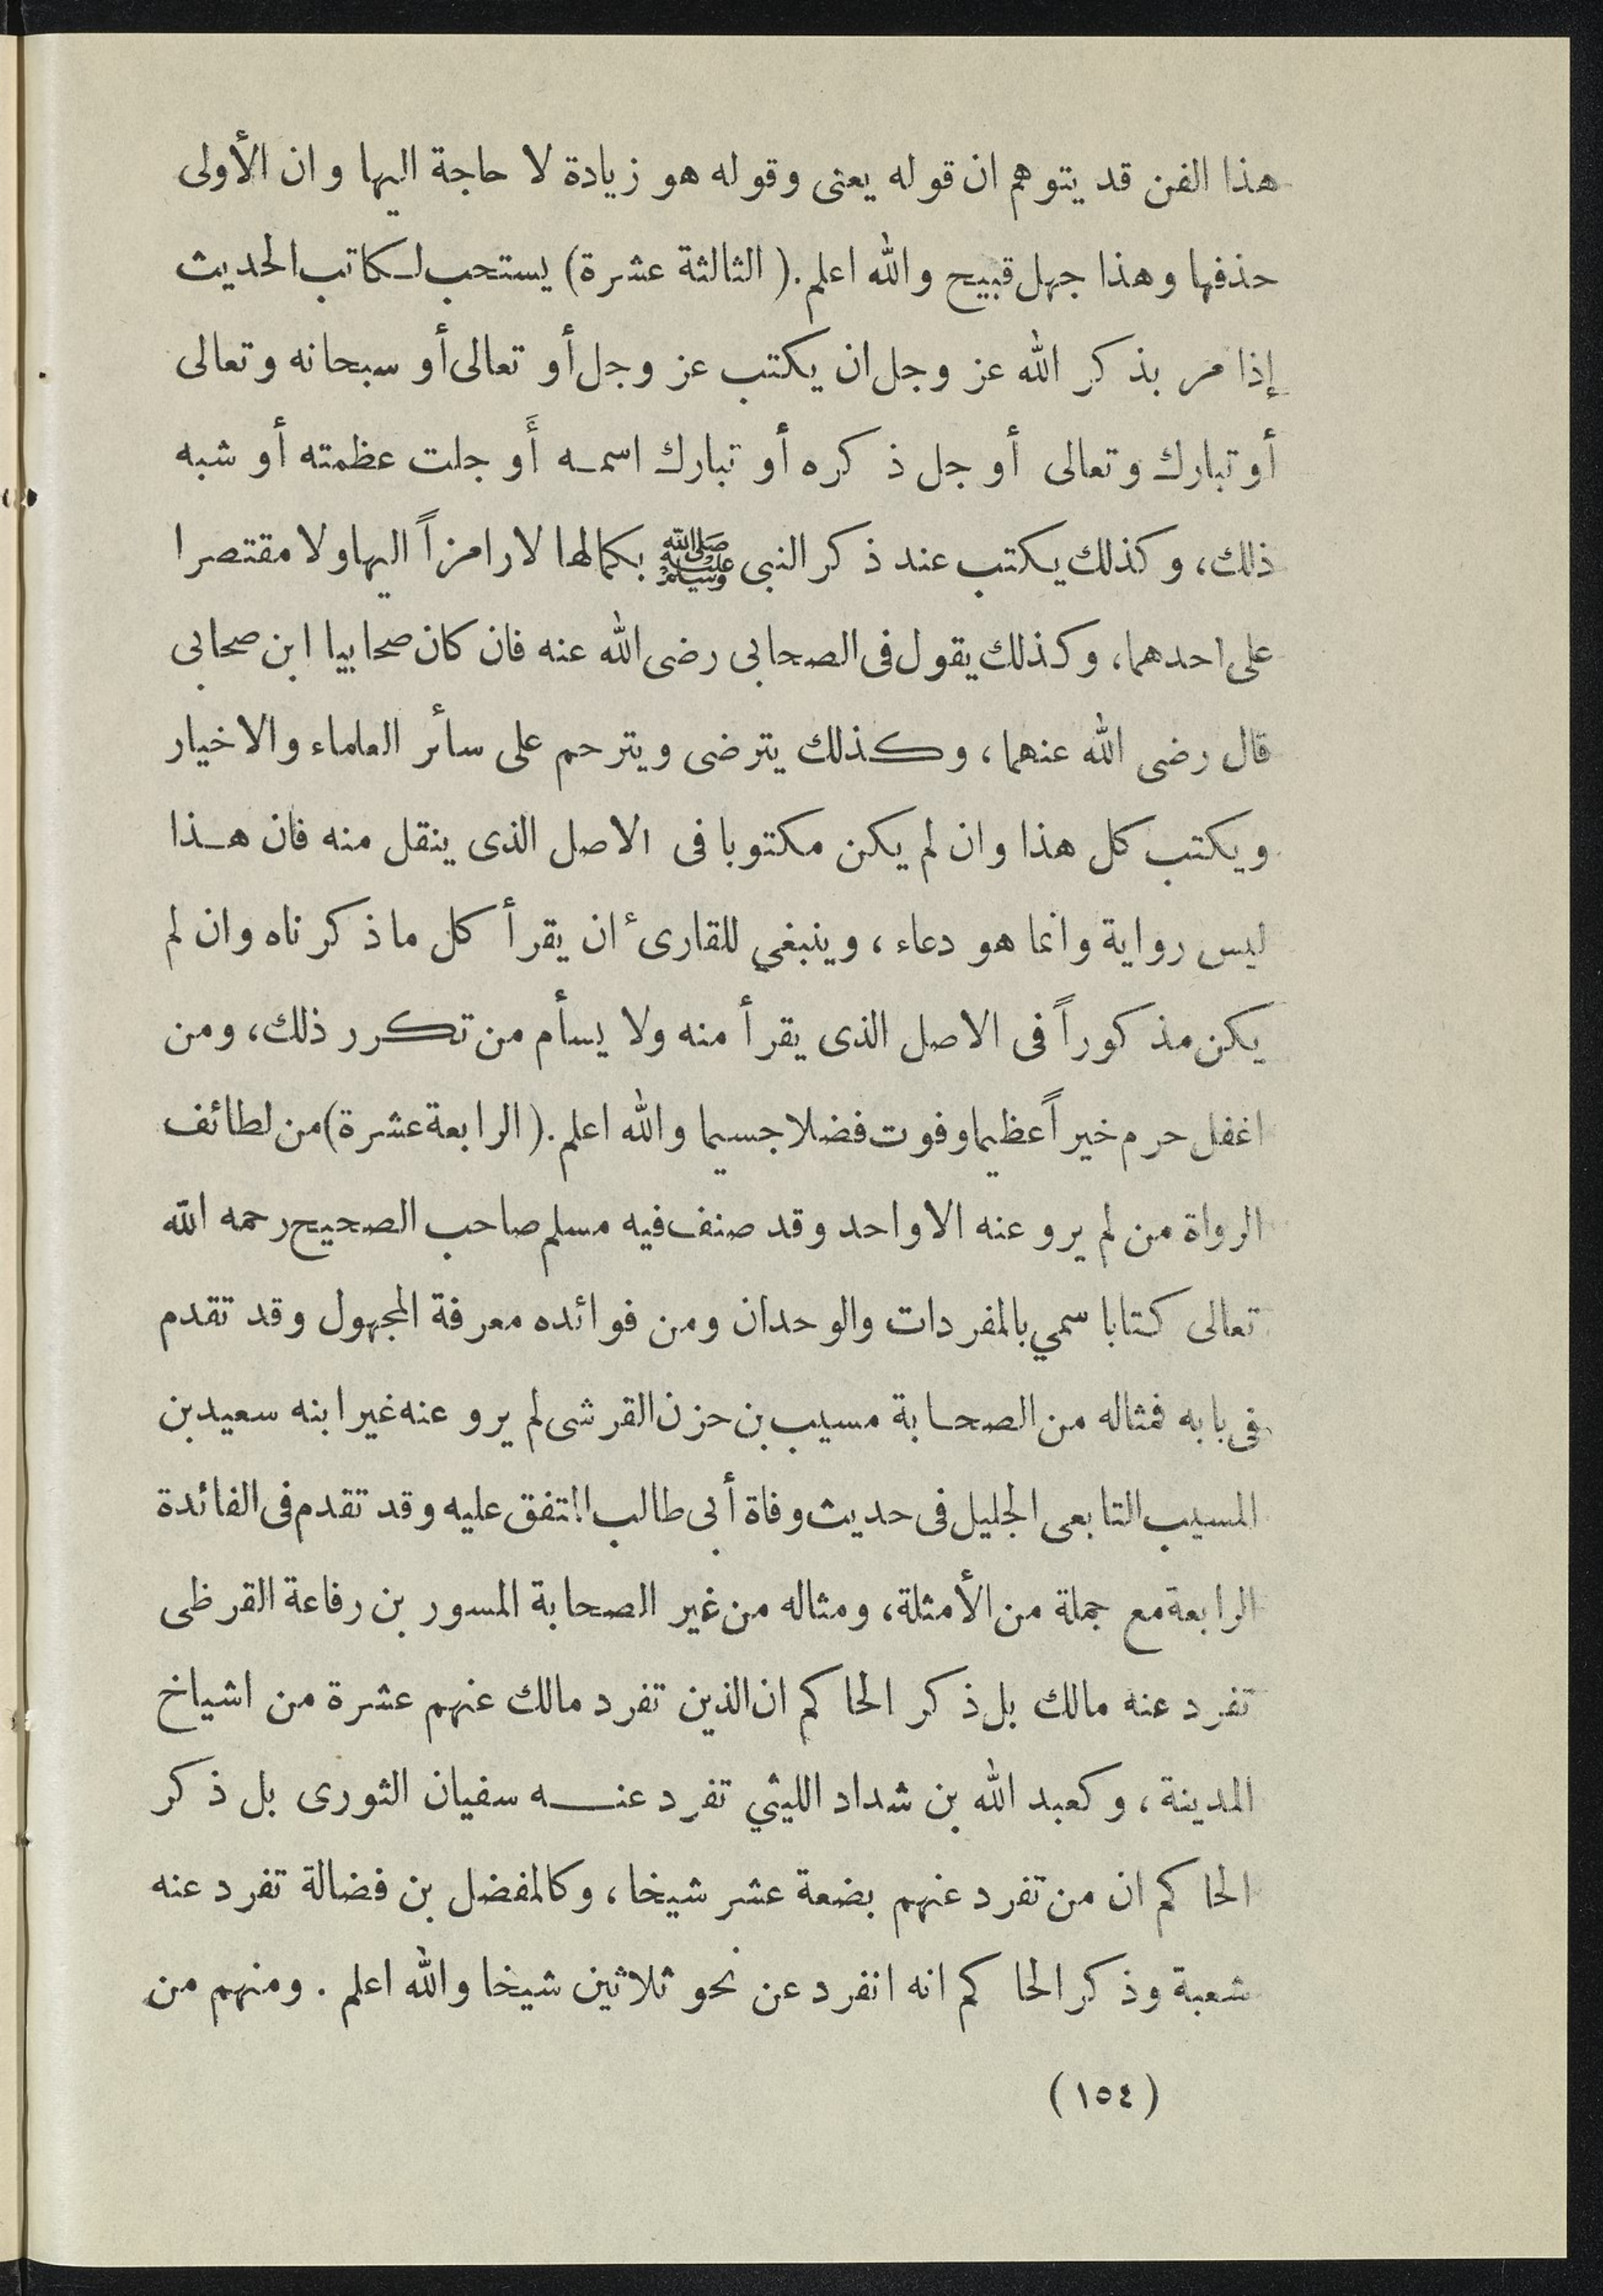 هذا الفن قد يتوهم ان قوله يعنى وقوله هو زيادة لا حاجة اليها وان الأولى
حذفها وهذا جهل قبيح والله اعلم. (الثالثة عشرة) يستحب لكاتب الحديث
إذا مر بذكر الله عز وجل ان يكتب عز وجل أو تعالى أو سبحانه وتعالى
أو تبارك وتعالى أو جل ذكره أو تبارك اسمه أَو جلت عظمته أو شبه
ذلك، وكذلك يكتب عند ذكر النبى ﷺ بكمالها لا رامزاً اليها ولا مقتصرا
على احدهما، وكذلك يقول فى الصحابى رضى الله عنه فان كان صحابيا ابن صحابى
قال رضى الله عنهما، وكذلك يترضى ويترحم على سأئر العلماء والاخيار
ويكتب كل هذا وان لم يكن مكتوبا فى الاصل الذى ينقل منه فان هذا
ليس رواية وانما هو دعاء، وينبغي للقارئ ان يقرأ كل ما ذكرناه وان لم
يكن مذكوراً فى الاصل الذى يقرأ منه ولا يسأم من تكرر ذلك، ومن
اغفل حرم خيراً عظيما وفوت فضلا جسيما والله اعلم. (الرابعة عشرة) من لطائف
الرواة من لم يرو عنه الا واحد وقد صنف فيه مسلم صاحب الصحيح رحمه الله
تعالى كتابا سمي بالمفردات والوحدان ومن فوائده معرفة المجهول وقد تقدم
فى بابه فمثاله من الصحابة مسيب بن حزن القرشى لم يرو عنه غير ابنه سعيد بن
المسيب التابعى الجليل فى حديث وفاة أبى طالب المتفق عليه وقد تقدم فى الفائدة
الرابعة مع جملة من الأمثلة، ومثاله من غير الصحابة المسور بن رفاعة القرظى
تفرد عنه مالك بل ذكر الحاكم ان الذين تفرد مالك عنهم عشرة من اشياخ
المدينة، وكعبد الله بن شداد الليثي تفرد عنه سفيان الثورى بل ذكر
الحاكم ان من تفرد عنهم بضعة عشر شيخا، وكالمفضل بن فضالة تفرد عنه
شعبة وذكر الحاكم انه انفرد عن نحو ثلاثين شيخا والله اعلم. ومنهم من
(١٥٤)